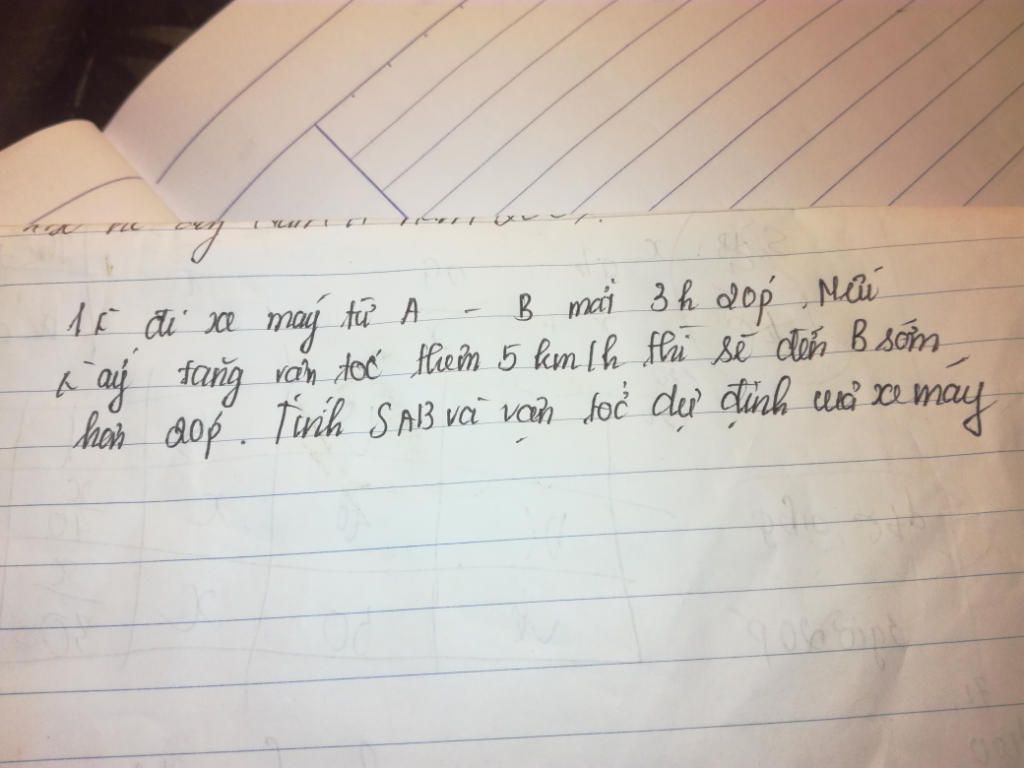 1 đi xe máy từ A - B mất 3h 20p. Nếu
ấy tăng vận tốc thêm 5 km/h thì sẽ đến B sớm
hơn 20p. Tính SAB và vận tốc dự định của xe máy